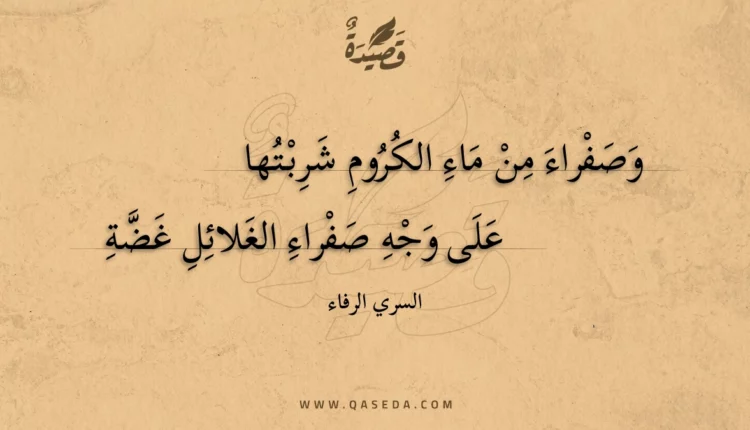 قَصِيْدَةٌ
وَصَفْراءَ مِنْ مَاءِ الكُرُومِ شَرِبْتُها
عَلَى وَجْهِ صَفْراءِ الغَلائِلِ غَضَّةِ
السري الرفاء
WWW.QASEDA.COM